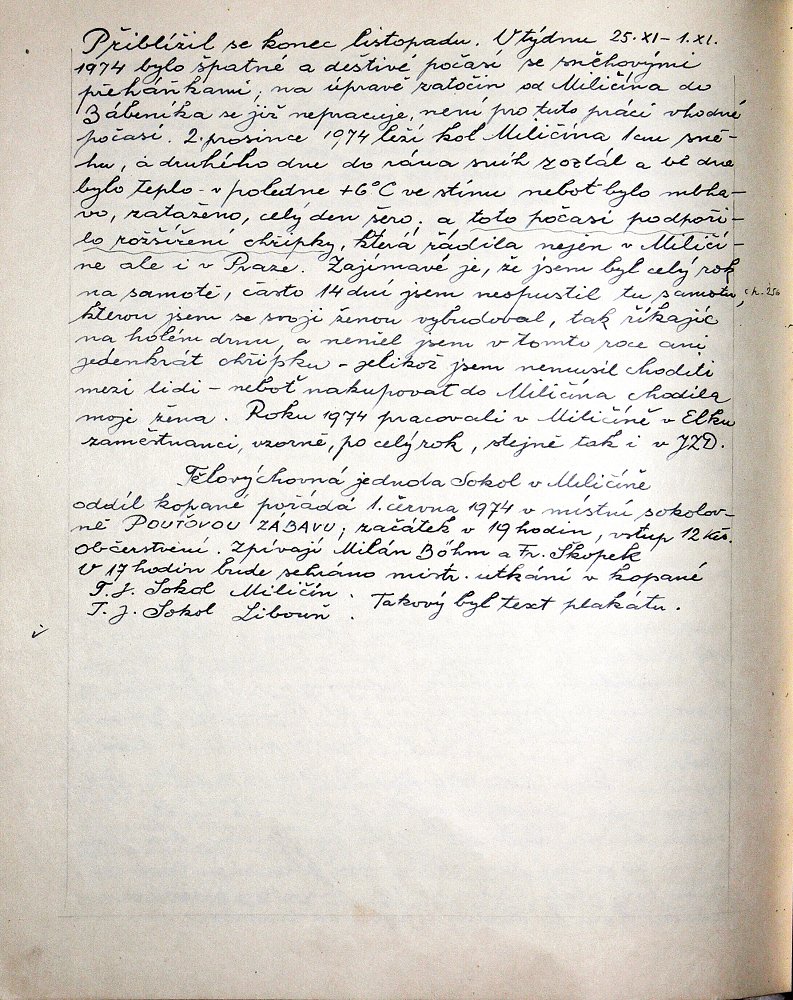 Přiblížil se konec listopadu. V týdnu 25.XI – 1.XI.
1974 bylo špatné a deštivé počasí se sněhovými
přeháňkami, na úpravě zatočin od Miličína do
Zábeníka se již nepracuje, není pro tuto práci vhodné
počasí. 2. prosince 1974 leží kol Miličína 1 cm sně-
hu, a druhého dne do rána sníh roztál a ve dne
bylo teplo – v poledne +6°C ve stínu neboť bylo mlha-
vo, zataženo, celý den šero, a toto počasí podpoři-
lo rozšíření chřipky, která řádila nejen v Miličí-
ně ale i v Praze. Zajímavé je, že jsem byl celý rok
na samotě, často 14 dní jsem neopustil tu samotu,
kterou jsem se svojí ženou vybudoval, tak říkajíc
na holém drnu, a neměl jsem v tomto roce ani
jedenkrát chřipku – jelikož jsem nemusil choditi
mezi lidi – neboť nakupovat do Miličína chodila
moje žena. Roku 1974 pracovali v Miličíně v Elku
zaměstnanci, vzorně, po celý rok, stejně tak i v JZD.
Tělovýchovná jednota Sokol v Miličíně
oddíl kopané pořádá 1. června 1974 v místní sokolov-
ně POUŤOVOU ZÁBAVU; začátek v 19 hodin, vstup 12 Kčs.
Občerstvení. Zpívají Milán Böhm a Fr. Škopek
V 17 hodin bude sehráno mistr. utkání v kopané
T. J. Sokol Miličín.
T. J. Sokol Libouň. Takový byl text plakátu.